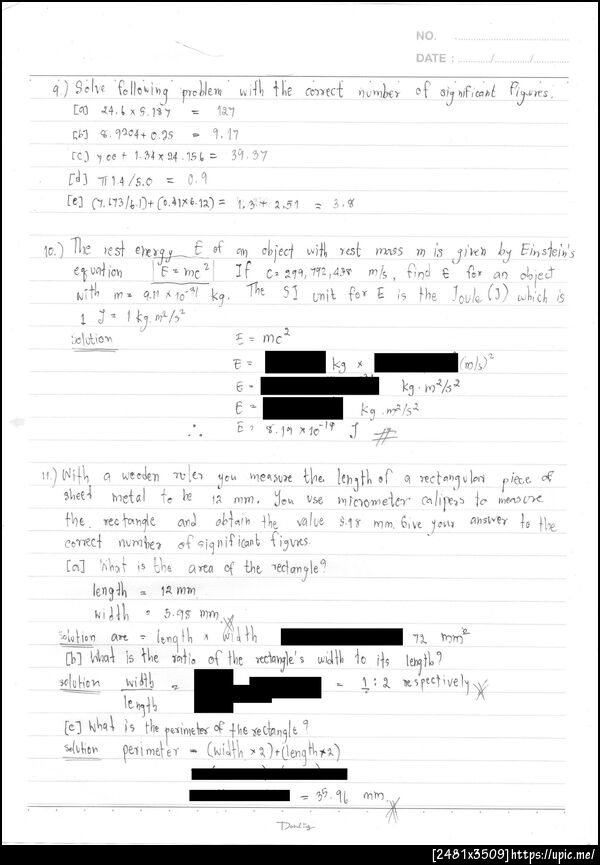 NO.
DATE : ........./........./.........
9.) Solve following problem with the correct number of significant figures.
[a] 24.6 x 5.187 = 127
[b] 8.9204 + 0.25 = 9.17
[c] + 1.34 x 24.756 = 39.37
[d] π14/5.0 = 0.9
[e] (7.673/6.1)+(0.41x6.12) = + 2.51 = 3.8
10.) The rest energy E of an object with rest mass m is given by Einstein's
equation E = mc² If c = 299,792,458 m/s, find E for an object
with m = 9.11 x 10⁻³¹ kg. The SI unit for E is the Joule (J) which is
1 J = 1 kg.m²/s²
solution E = mc²
E = kg x (m/s)²
E = kg.m²/s²
E = kg.m²/s²
∴ E = 8.19 x 10⁻¹⁴ J #
11.) With a wooden ruler you measure the length of a rectangular piece of
sheet metal to be 12 mm. You use micrometer calipers to measure
the rectangle and obtain the value 5.98 mm. Give your answer to the
correct number of significant figures.
[a] What is the area of the rectangle?
length = 12 mm
width = 5.98 mm
solution are = length x width 72 mm²
[b] What is the ratio of the rectangle's width to its length?
solution width/length = = 1 : 2 respectively
[c] What is the perimeter of the rectangle?
solution perimeter = (width x 2)+(length x 2)
= 35.96 mm.
[2481x3509]https://upic.me/